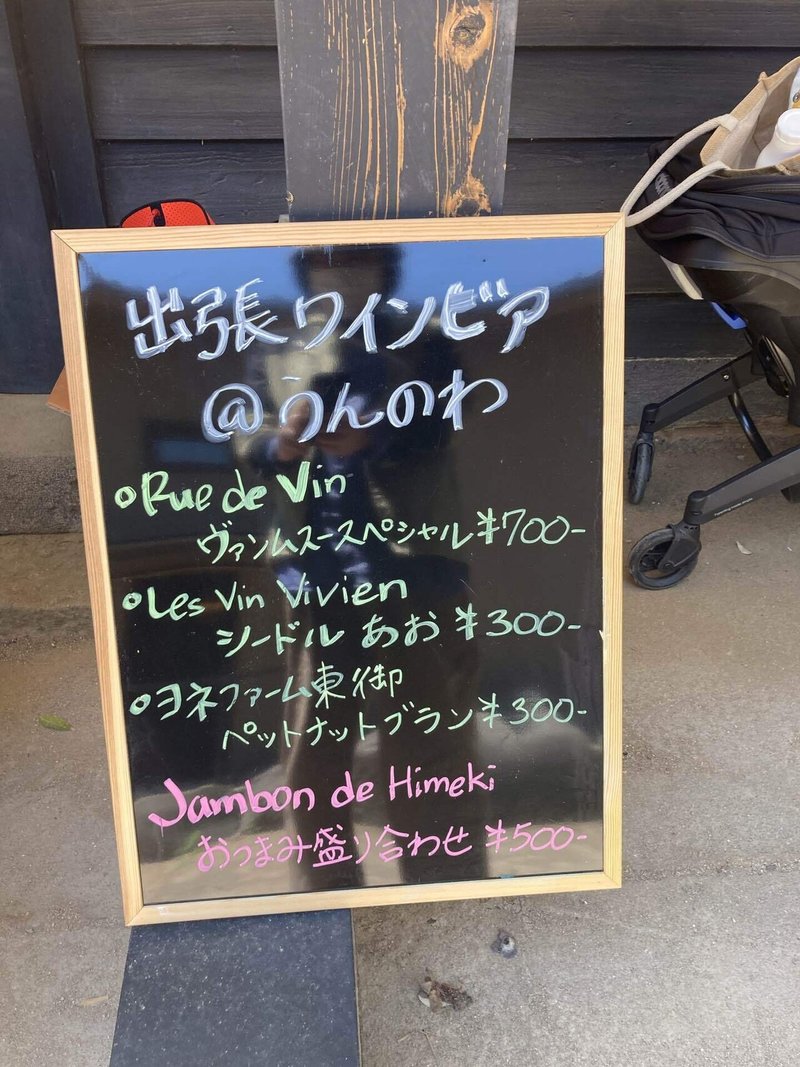 出張ワインビア
@うんのわ
Rue de Vin
ヴァンムスースペシャル ¥700-
Les Vin Vivien
シードル あお ¥300-
ヨネファーム東御
ペットナットブラン ¥300-
Jambon de Himeki
おつまみ盛り合わせ ¥500-